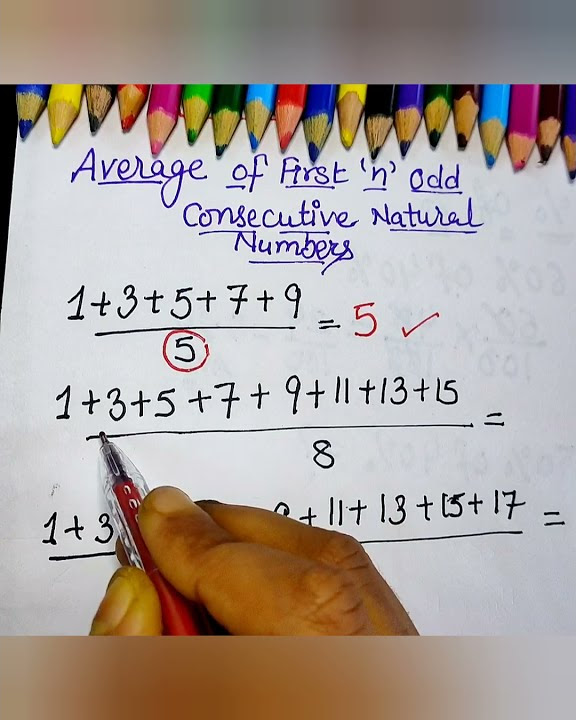 Average of First 'n' Odd
Consecutive Natural
Numbers
1+3+5+7+9
= 5 ✓
5
1+3+5+7+9+11+13+15
=
8
1+3 + 11+13+15+17 =